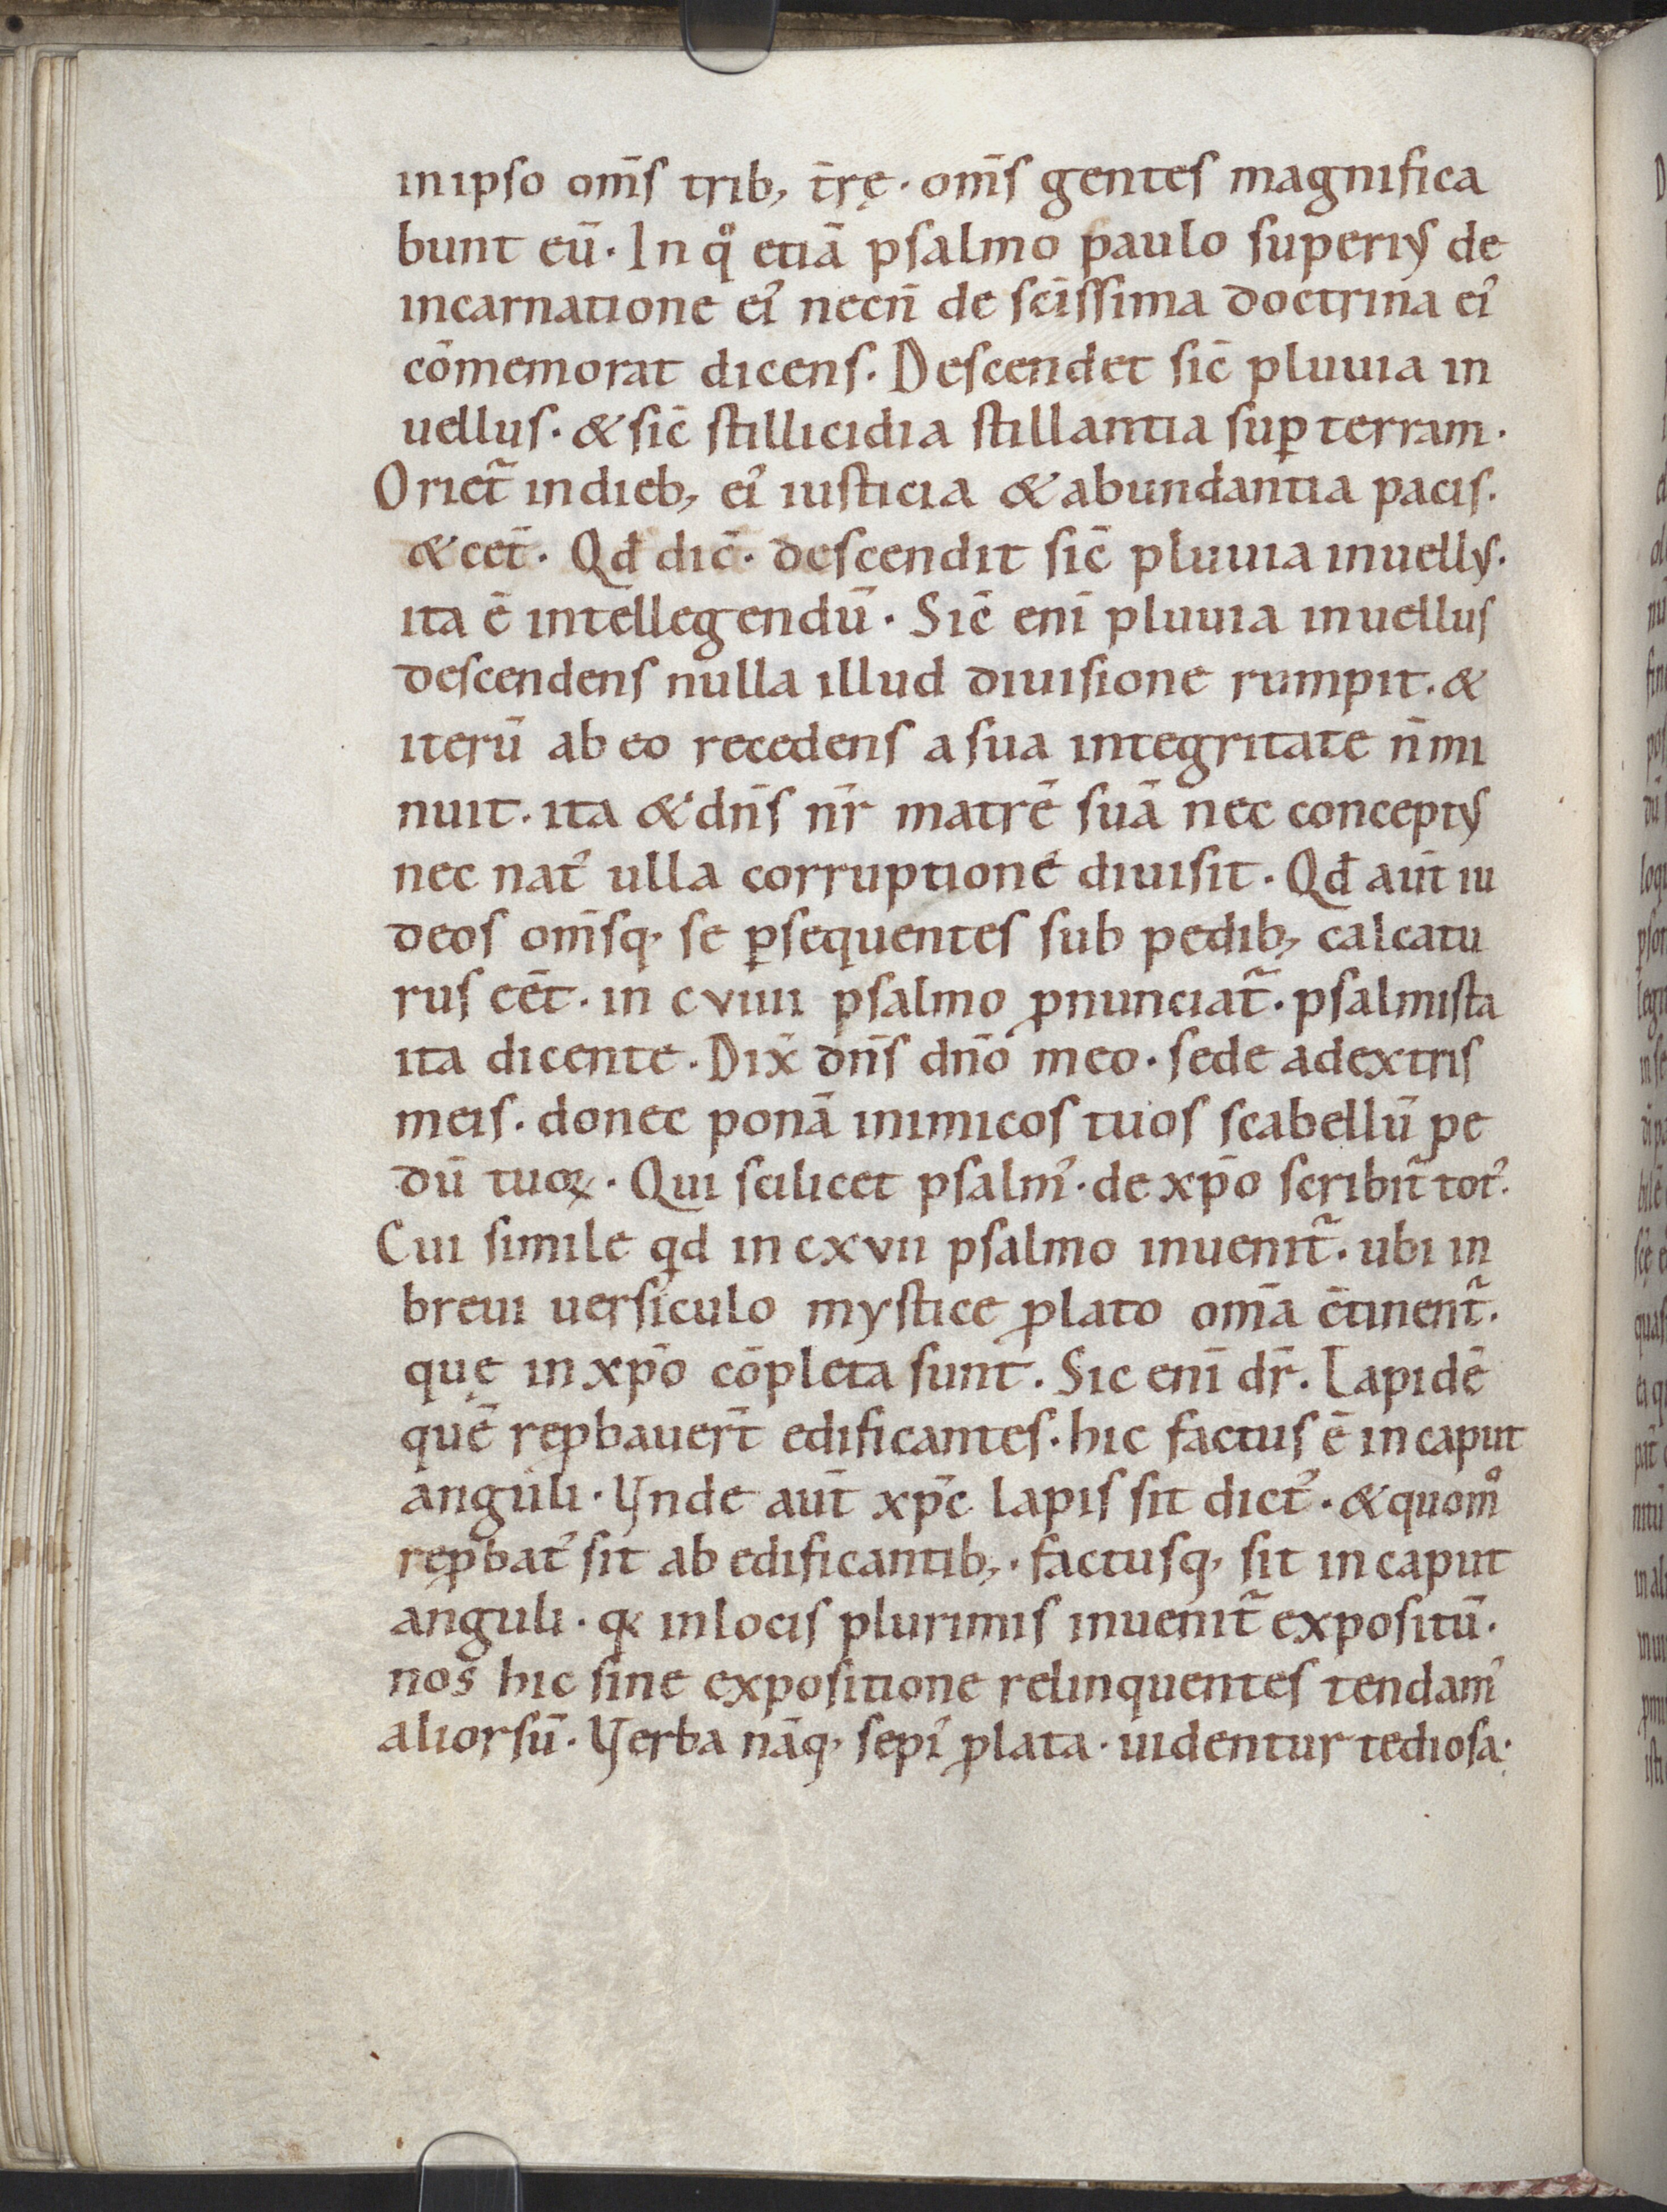 in ipso om̄s trib; t̄rę · om̄s gentes magnifica
bunt eū · In qͦ etiā psalmo paulo superiꝰ de
incarnatione ei᾿ necn̄ de sc̄issima doctrina ei᾿
cōmemorat dicens · Descendet sic̄ pluuia in
uellus · & sic̄ stillicidia stillantia suꝑ terram ·
Oriet̃ in dieb; ei᾿ iusticia & abundantia pacis ·
& cet̄ · Qd̄ dic̄ · descendit sic̄ pluuia in uellꝰ ·
ita ē intellegendū · Sic̄ eni̅ pluuia in uellus
descendens nulla illud diuisione rumpit · &
iterū ab eo recedens a sua integritate n̄ mi
nuit · ita & dn̄s nr̄ matrē suā nec conceptꝰ
nec nat᾿ ulla corruptione diuisit · Qd̄ aut̄ iu
deos om̄sq· se ꝑsequentes sub pedib; calcatu
rus eēt · in cviiii psalmo ꝓnunciat̃ · psalmista
ita dicente · Dix̄ dn̄s dn̄o meo · sede a dextris
meis · donec ponā inimicos tuos scabellū pe
dū tuoꝝ · Qui scilicet psalm᾿ · de xp̄o scribit̃ tot᾿ ·
Cui simile qd̄ in cxvii psalmo inuenit̃ · ubi in
breui uersiculo mystice ꝓlato om̄a c̄tinent̃ ·
quę in xp̄o cōpleta sunt · Sic eni̅ dr̄ · Lapidē
quē reꝓbauer̄t edificantes · hic factus ē in caput
anguli · Vnde aut̄ xp̄c lapis sit dict᾿ · & quomͦ
reꝓbat᾿ sit ab edificantib; · factusq· sit in caput
anguli · qꝛ in locis plurimis inuenit̃ expositū ·
nos hic sine expositione relinquentes tendam᾿
aliorsū · Verba nāq· sepi᾿ ꝓlata · uidentur tediosa ·